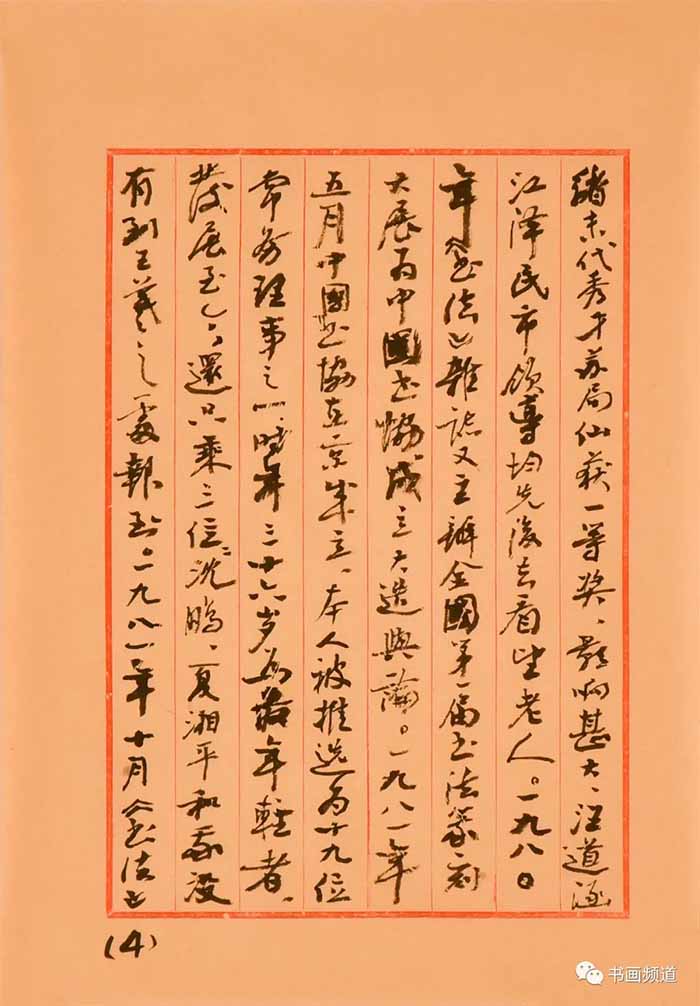 緒末代秀才苏局仙获一等奖、影响甚大、汪道涵
江泽民市领導均先後去看望老人。一九八〇
年《书法》雜誌又主辦全國第一届书法篆刻
大展为中國书协成立大造與論。一九八一年
五月中國书協在京成立、本人被推选为十九位
常务理事之一、時年三十六岁为最年輕者、
發展至今還只乘三位、沈鵬、夏湘平和我没
有到王羲之處報到。一九八一年十月《书法》
(4)
书画频道